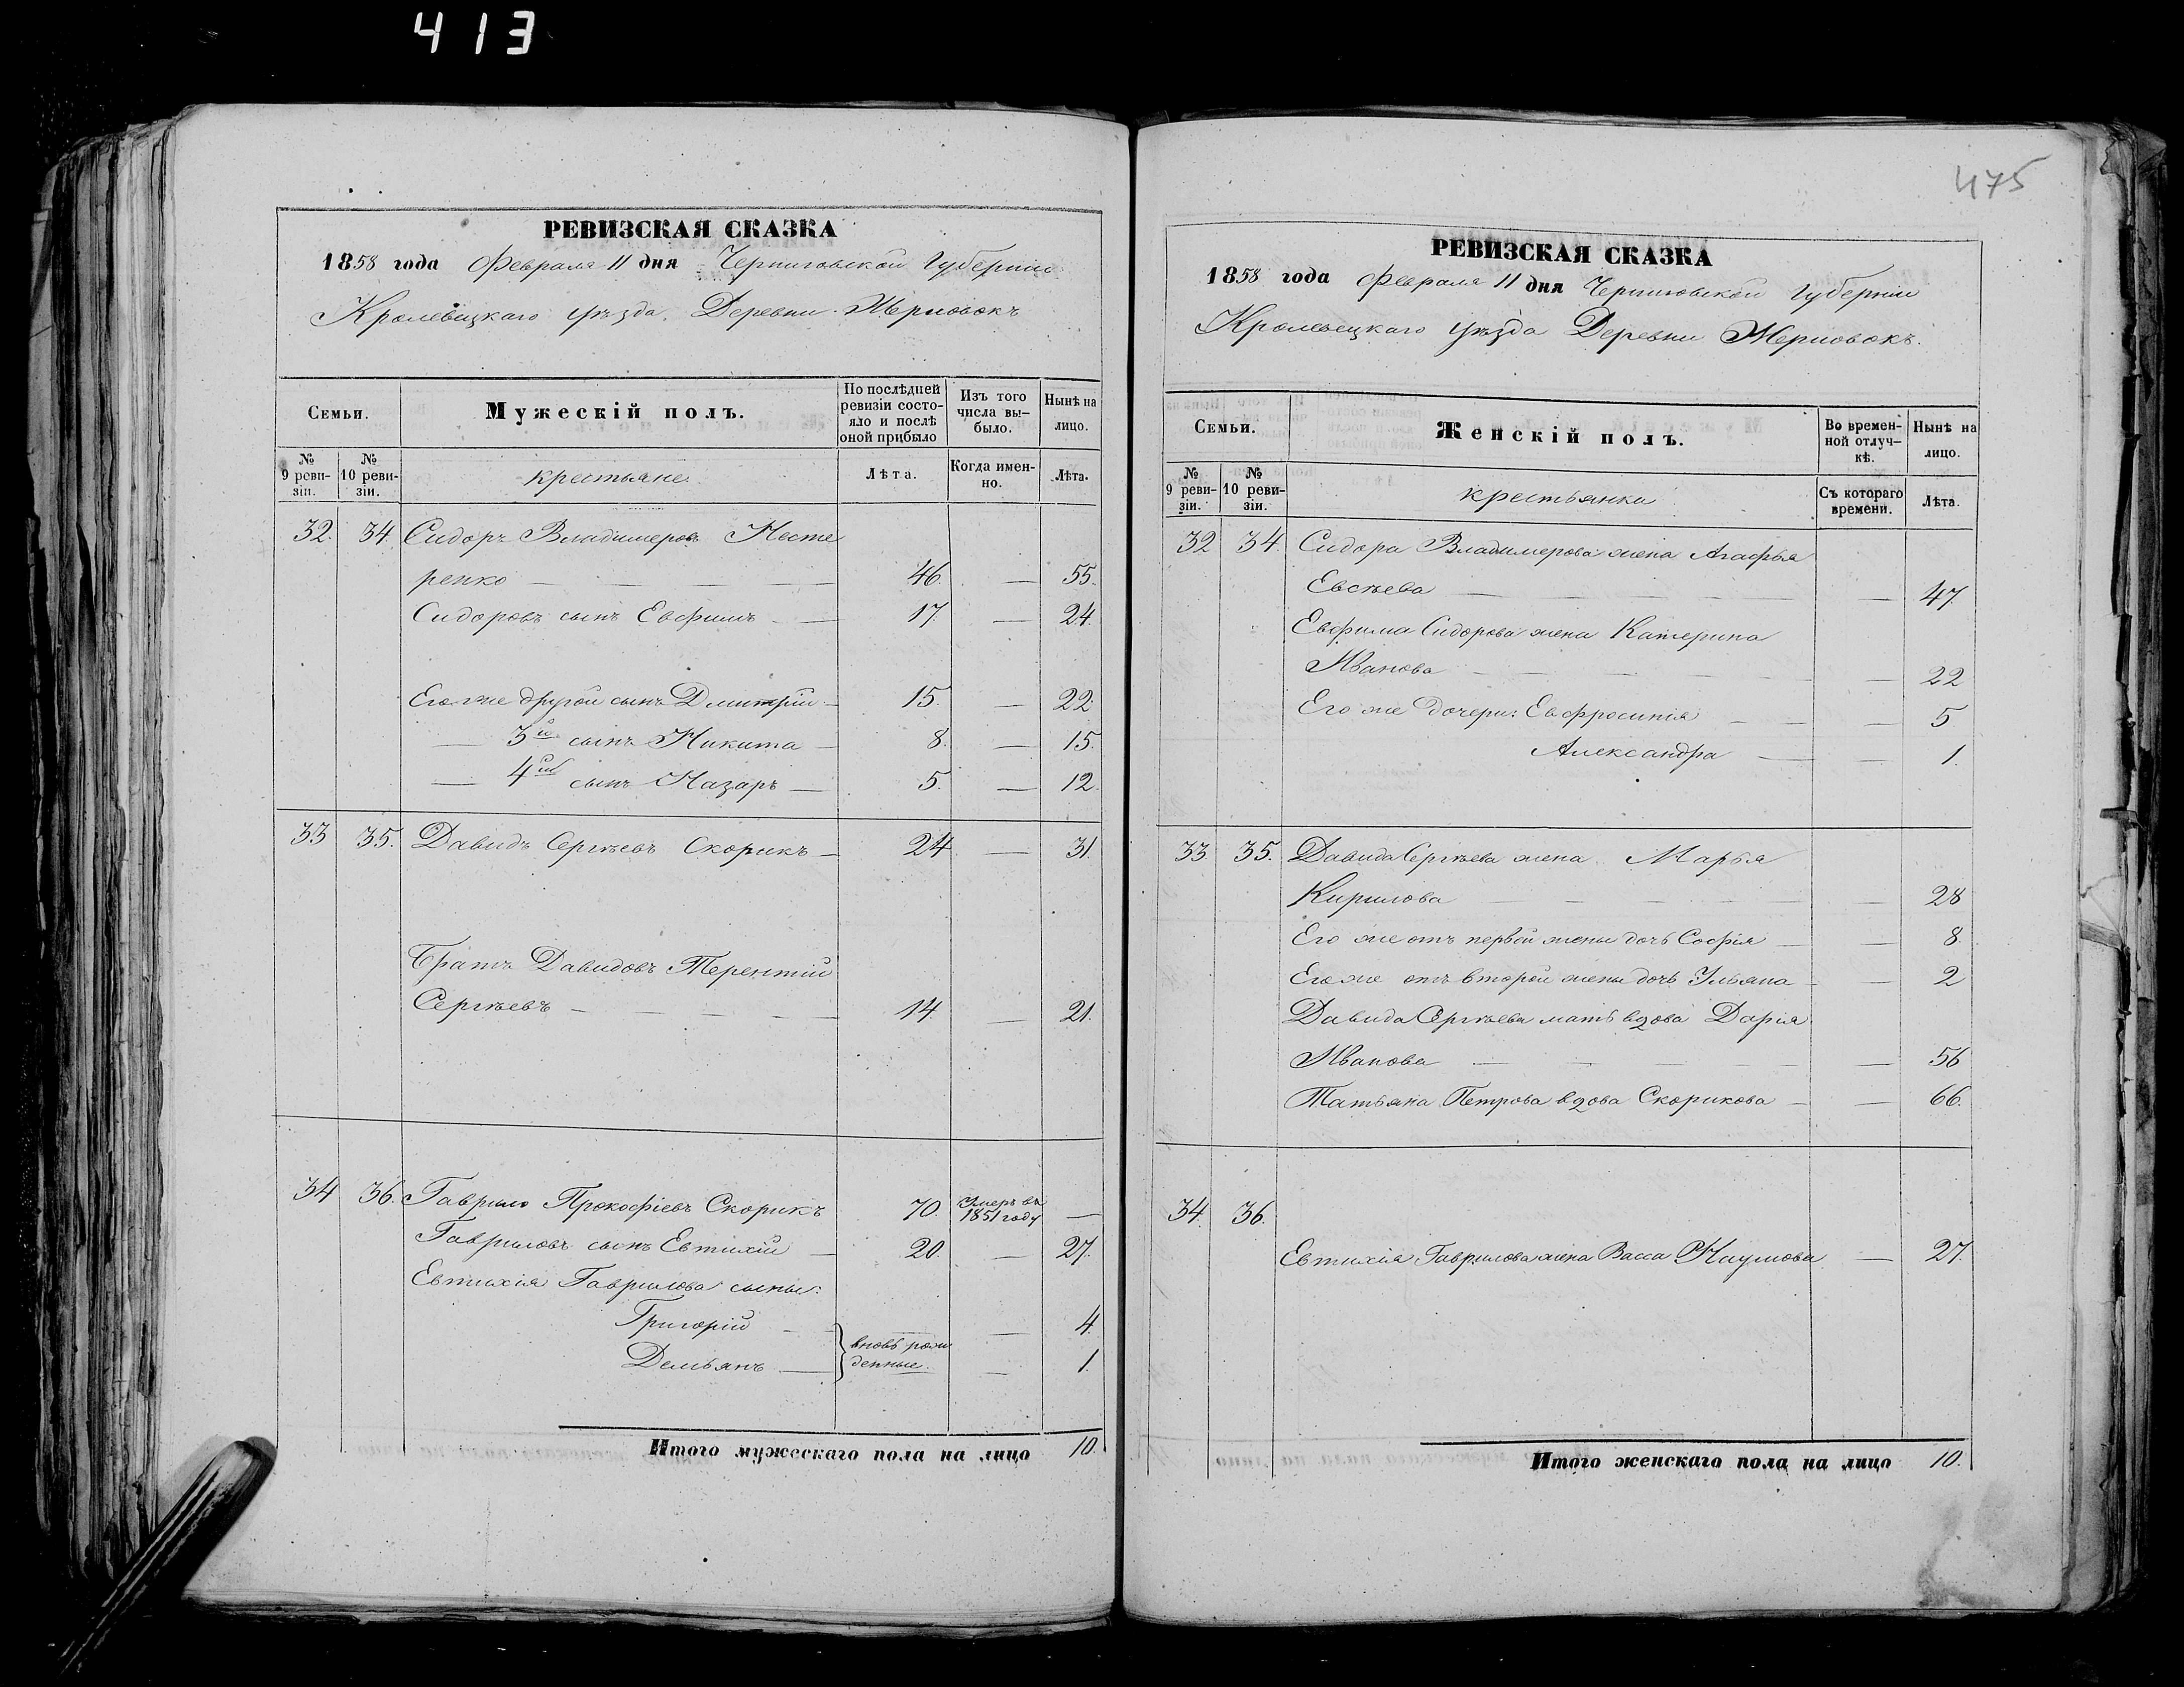 413
475
РЕВИЗСКАЯ СКАЗКА
1858 года Февраля 11 дня Черниговской Губерніи
Кролевецкаго уѣзда Деревни Жерновокъ
Семьи.
Мужескій полъ.
По послѣдней ревизіи состояло и послѣ оной прибыло
Изъ того числа выбыло.
Нынѣ на лицо.
№ 9 ревизіи.
№ 10 ревизіи.
крестьяне
Лѣта.
Когда именно.
Лѣта.
32. 34. Сидоръ Владимеровъ Несте
ренко — 46. — 55.
Сидоровъ сынъ Евфимъ — 17. — 24.
Его же другой сынъ Дмитрій — 15. — 22.
— 3й сынъ Никита — 8. — 15.
— 4ый сынъ Назаръ — 5. — 12.
33 35. Давидъ Сергѣевъ Скорикъ — 24 — 31.
Братъ Давидовъ Терентій
Сергѣевъ — 14. — 21.
34 36. Гаврило Прокофіевъ Скорикъ 70. Умеръ въ 1851 году —
Гавриловъ сынъ Евтихій — 20. — 27.
Евтихія Гаврилова сыны:
Григорій — 4.
Демьянъ — вновь рожденные. — 1.
Итого мужескаго пола на лицо 10.
РЕВИЗСКАЯ СКАЗКА
1858 года Февраля 11 дня Черниговской Губерніи
Кролевецкаго уѣзда Деревни Жерновокъ.
Семьи.
Женскій полъ.
Во временной отлучкѣ.
Нынѣ на лицо.
№ 9 ревизіи.
№ 10 ревизіи.
крестьянки
Съ котораго времени.
Лѣта.
32 34. Сидора Владимерова жена Агафья
Евсѣева — — 47.
Евфима Сидорова жена Катерина
Иванова — — 22
Его же дочери: Евфросинія — — 5
Александра — — 1.
33. 35. Давида Сергѣева жена Марья
Кирилова — — 28
Его же отъ первой жены дочь Софія — — 8.
Его же отъ второй жены дочь Ульяна — — 2
Давида Сергѣева мать вдова Дарія
Иванова — — 56
Татьяна Петрова вдова Скорикова — — 66.
34. 36.
Евтихія Гаврилова жена Васса Наумова — 27.
Итого женскаго пола на лицо 10.